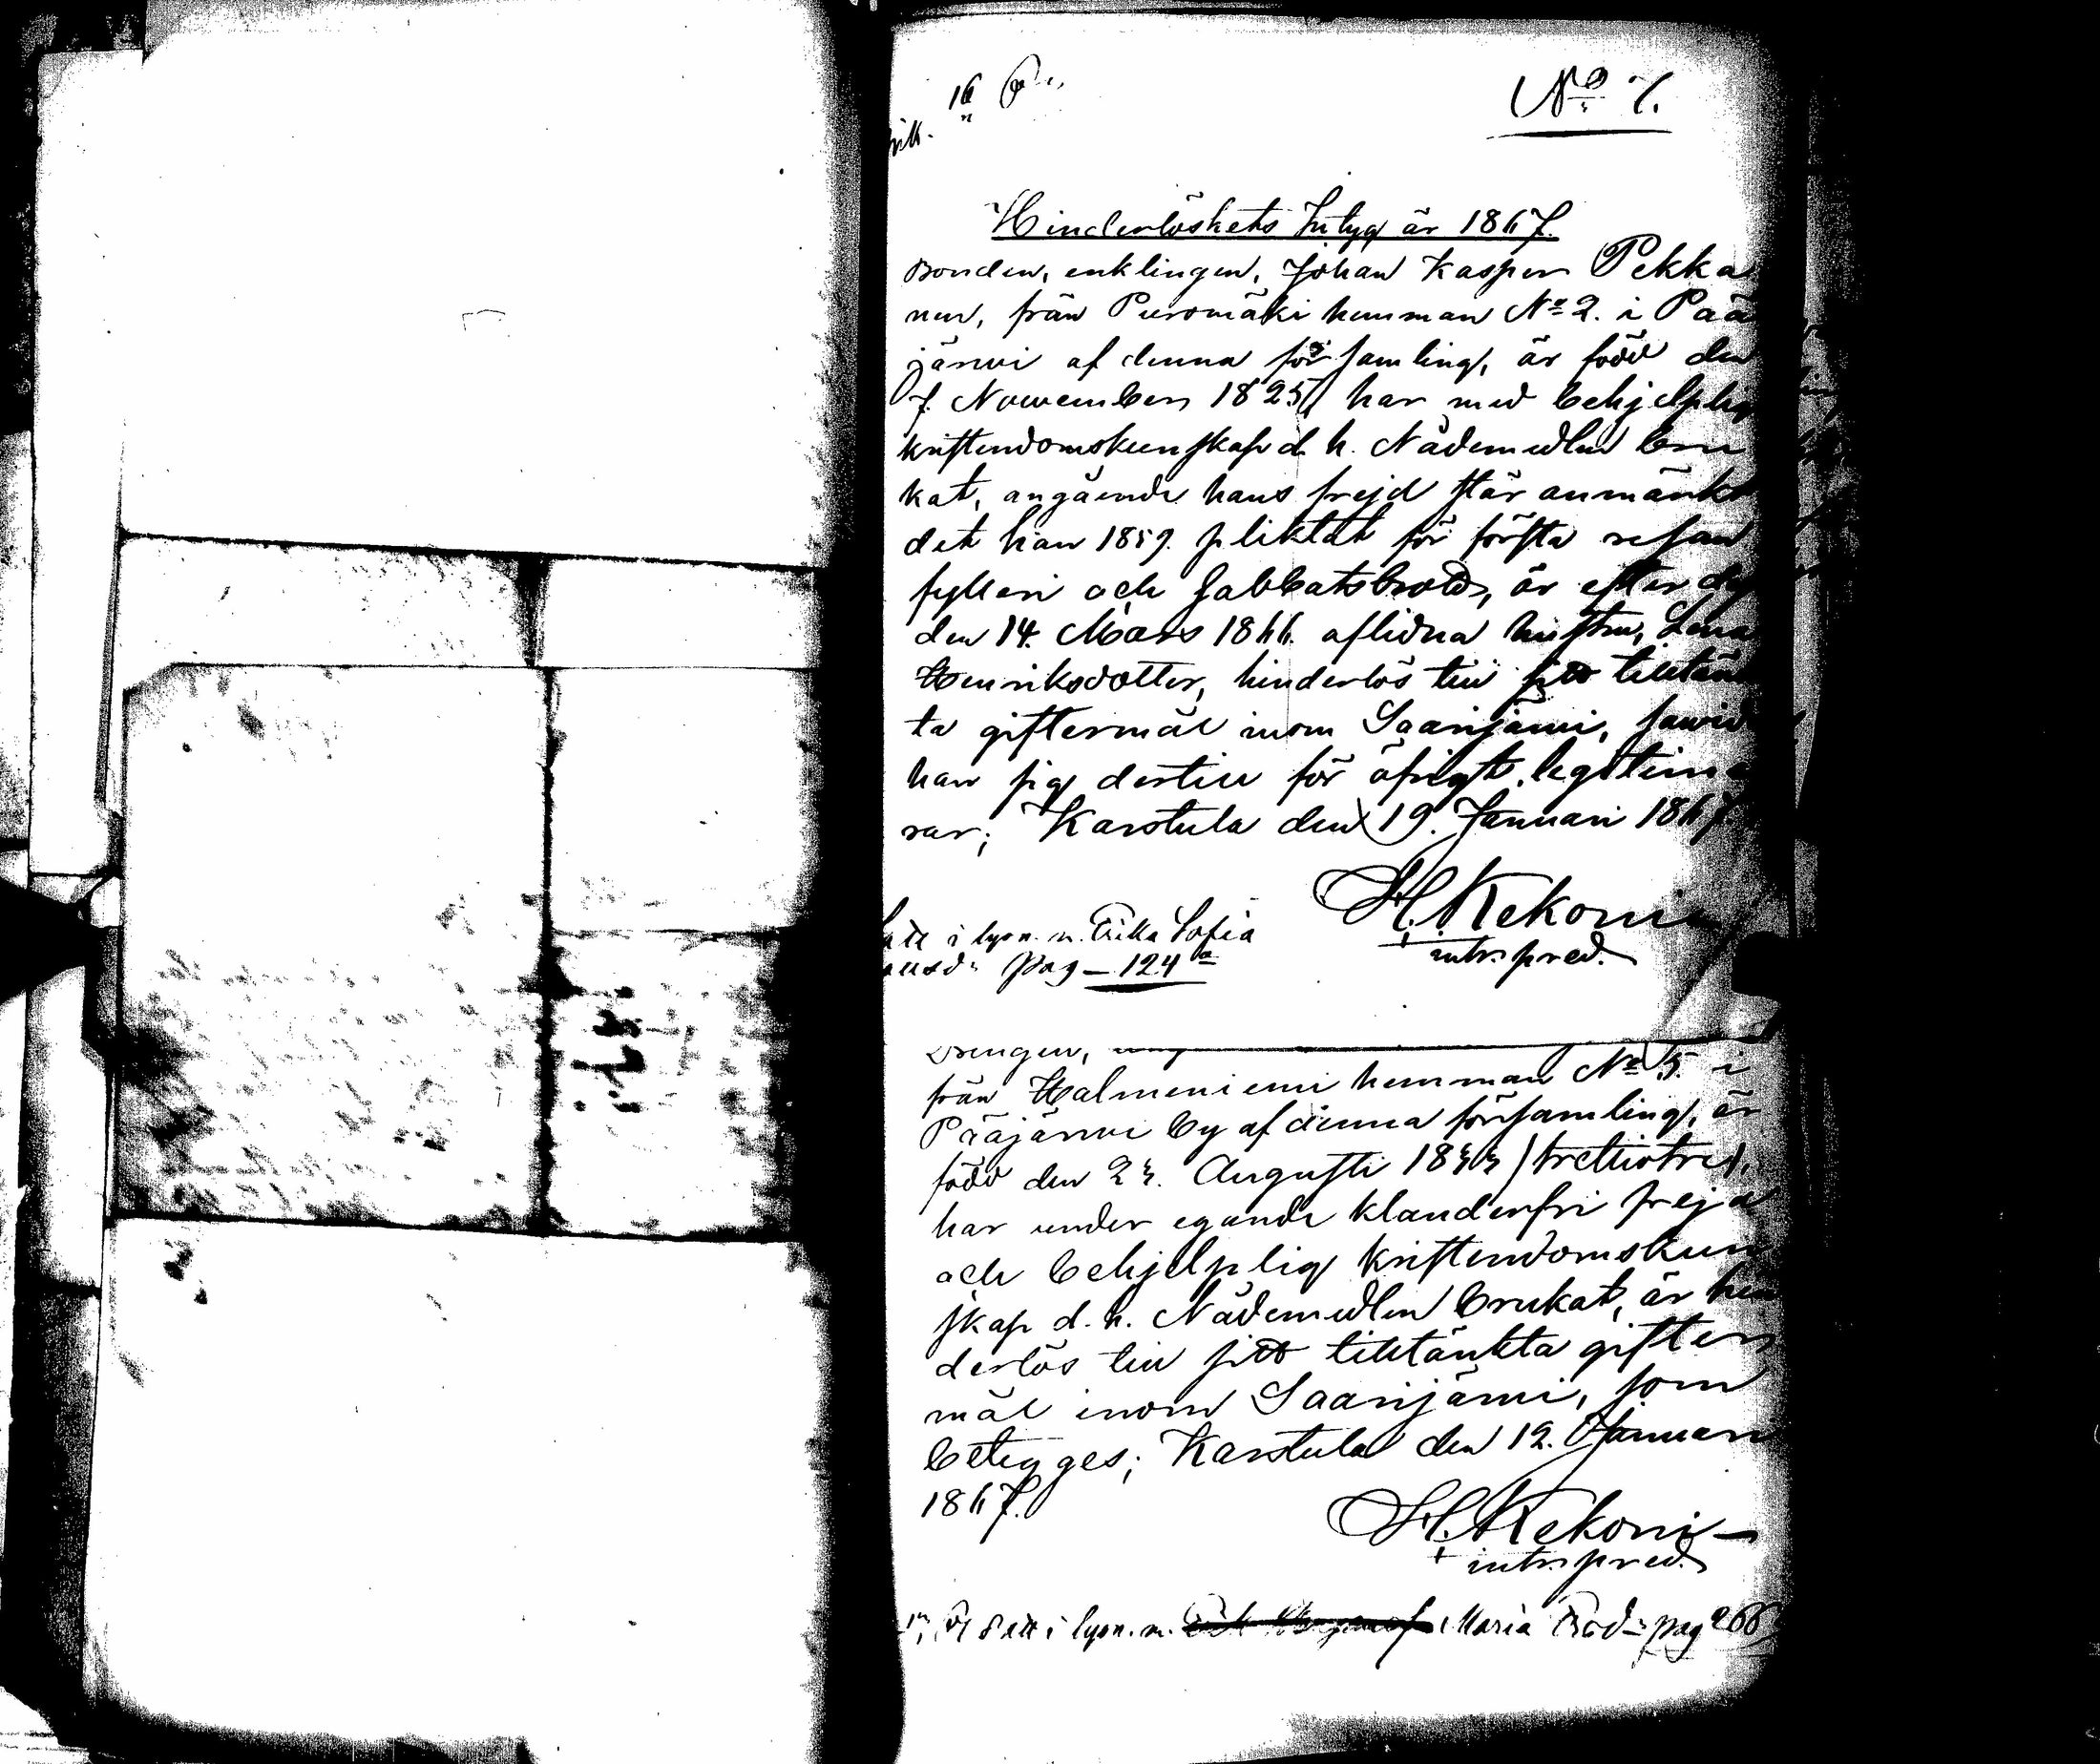 16
No 7.
Hinderlöshets Intyg år 1867.
Bonden, enklingen, Johan Kasper Pekka
nen, från Puromäki hemman No 2. i Pää
järwi af denna församling, är född den
7. Nowember 1825, har med behjelplig
kristendomskunskap d. h. Nådemedlen bru
kat, angående hans frejd står anmärkt
det han 1859. pliktat för första resan
fylleri och sabbatsbrott, är efter dess
den 14. Mars 1866. aflidna hustru, Lena
Henriksdotter, hinderlös till sitt tilltänk
ta giftermål inom Saarijärwi, sawida
han sig dertill för öfrigt legitime
rar; Karstula den 19. Januari 1867.
H. Kekoni
intr. pred.
i lysn. m. Erika Sofia
Pag – 124a
Drengen,
från Halmeniemi hemman No 5. i
Pääjärwi by af denna församling, är
född den 23. Augusti 1833 (trettiotre),
har under egande klanderfri frejd
och behjelplig kristendomskun
skap d. h. Nådemedlen brukat, är hin
derlös till sitt tilltänkta gifter
mål inom Saarijärwi, som
betygges; Karstula den 12. Januari
1867.
H. Kekoni
intr. pred.
i lysn. m. Maria pag 266